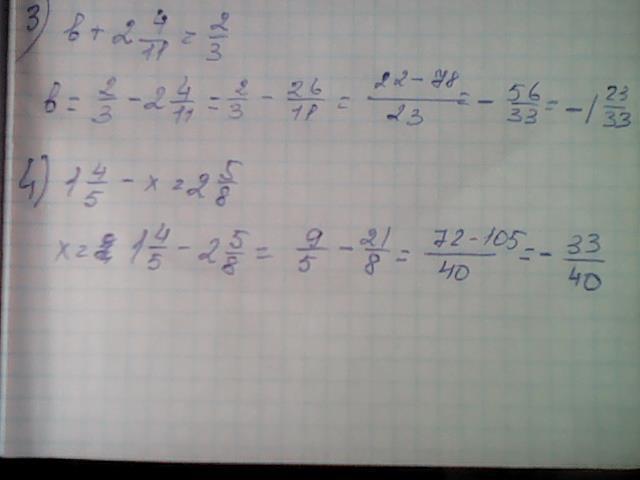 3) b + 2 4/11 = 2/3
b = 2/3 - 2 4/11 = 2/3 - 26/11 = 22-78/23 = - 56/33 = -1 23/33
4) 1 4/5 - x = 2 5/8
x = 1 4/5 - 2 5/8 = 9/5 - 21/8 = 72-105/40 = - 33/40